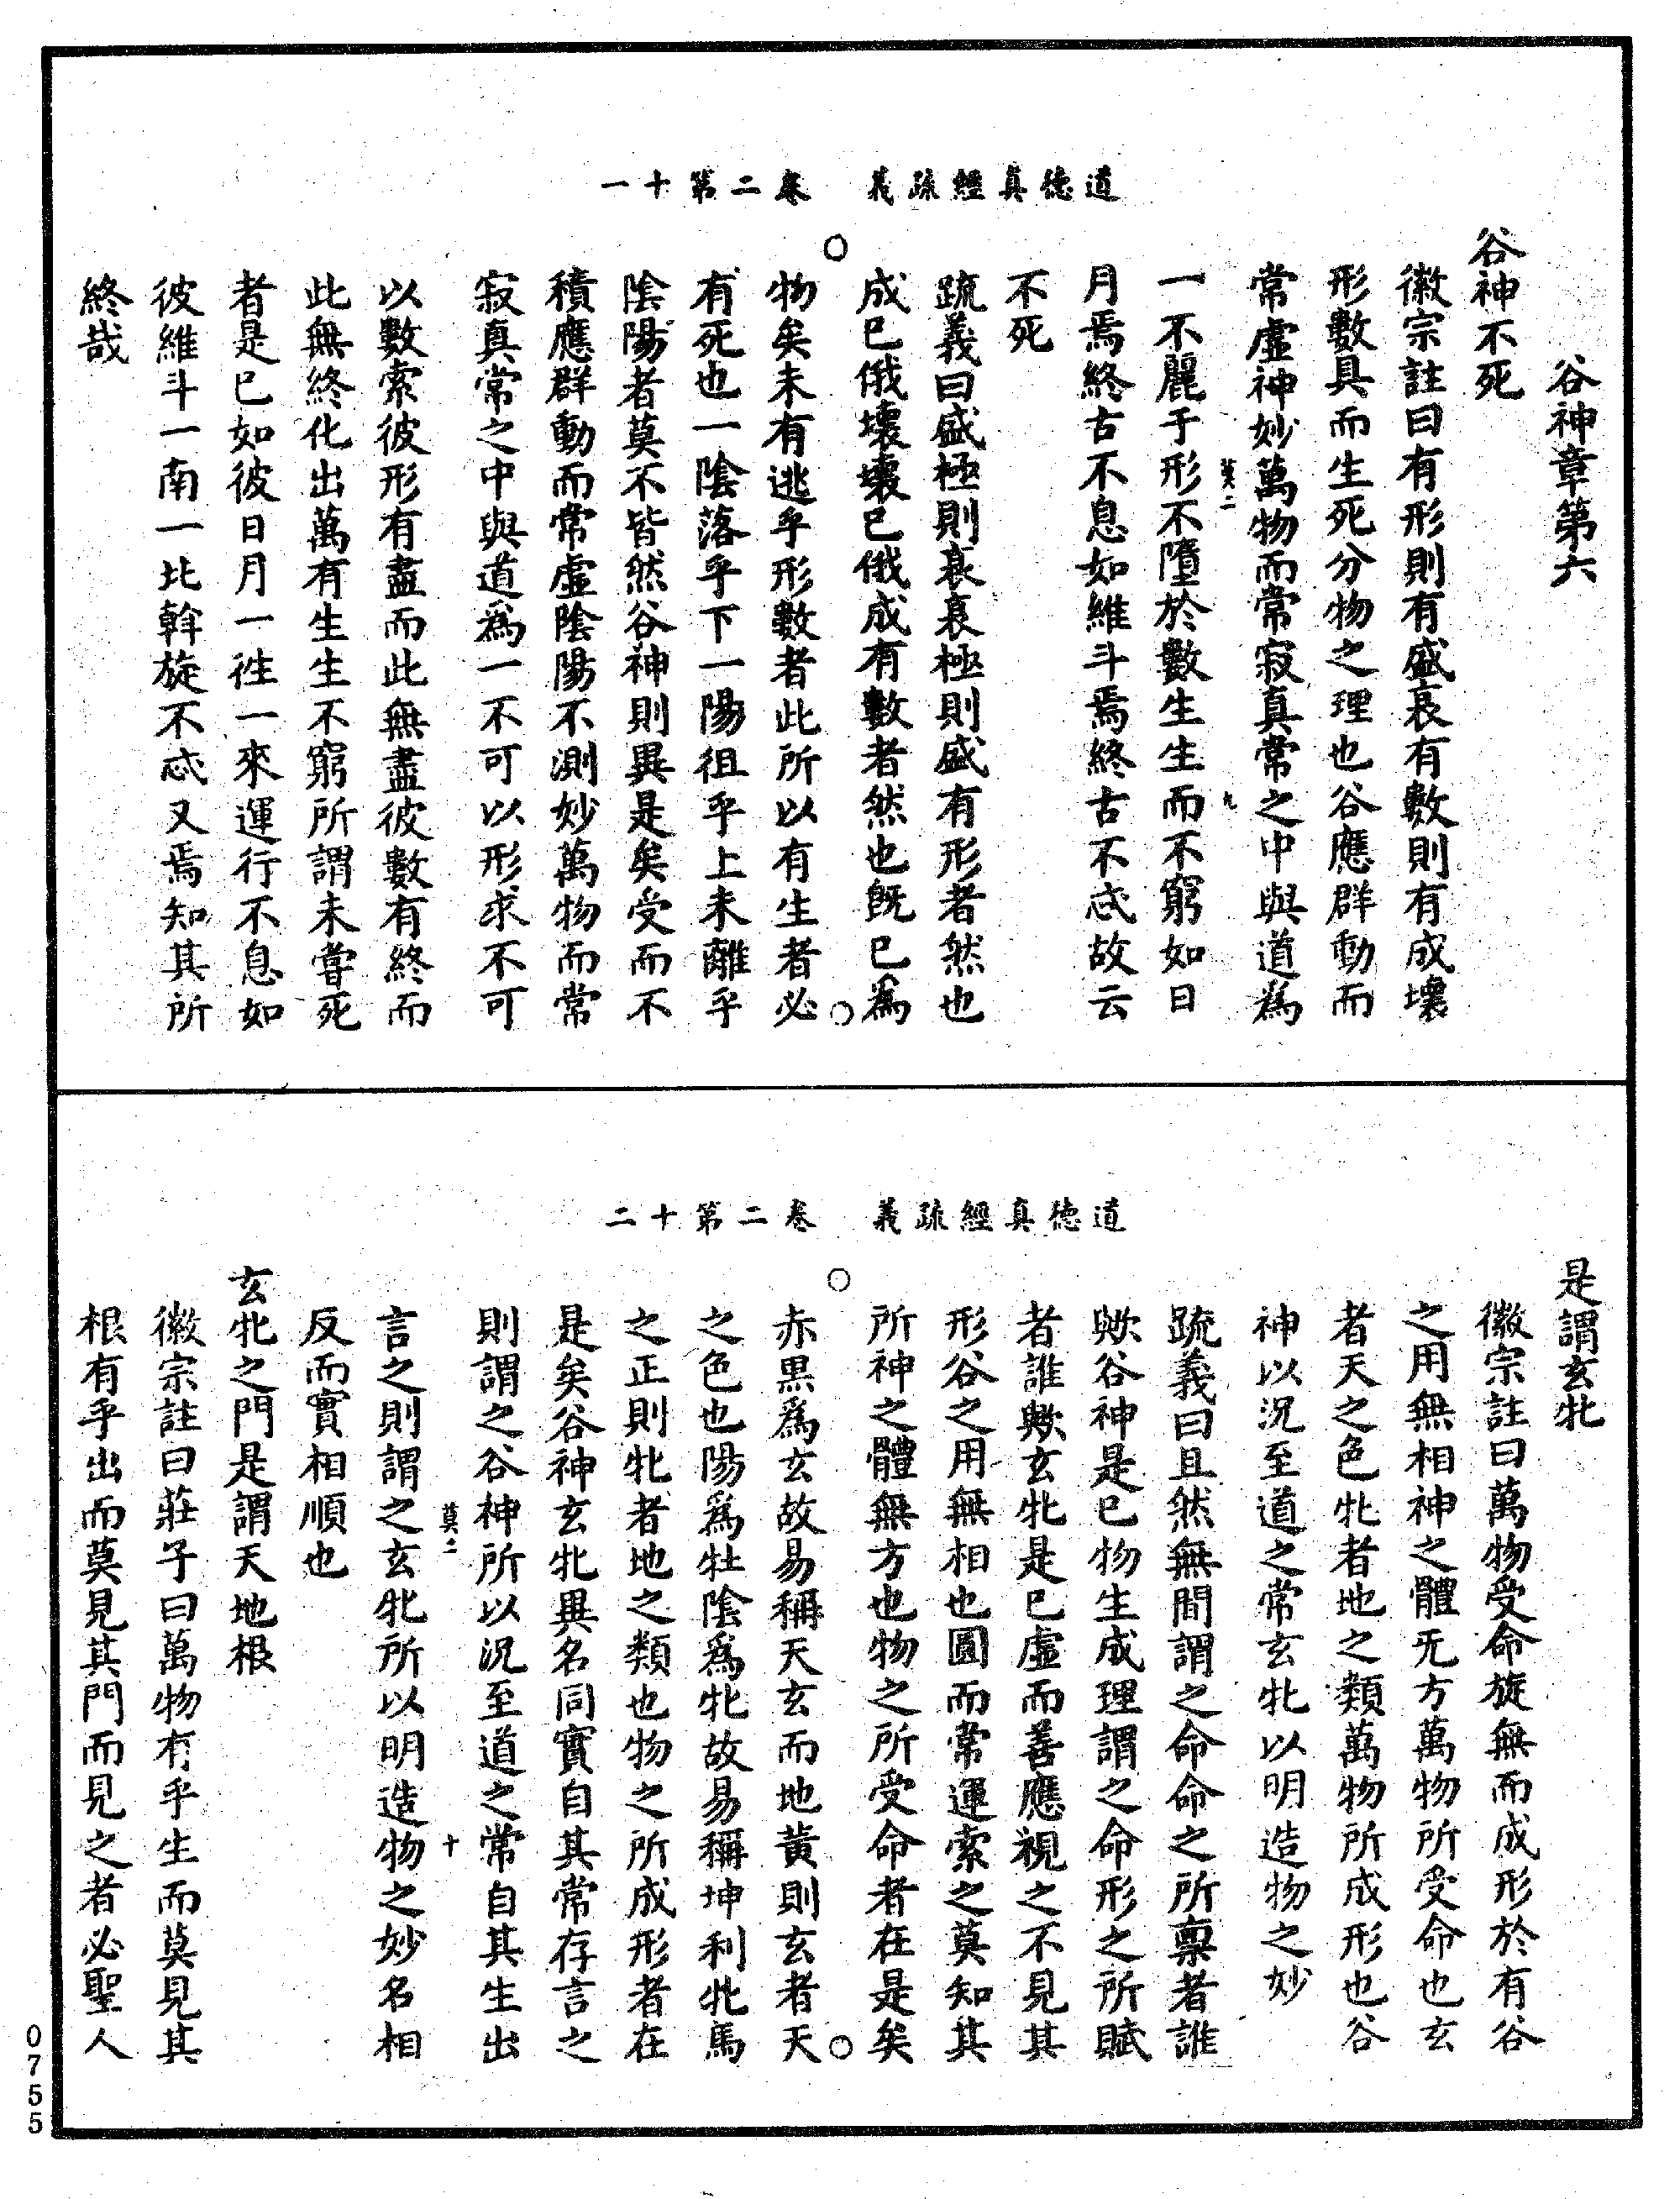 道德真經疏義　卷二第十一
谷神章第六
谷神不死
徽宗註曰有形則有盛衰有數則有成壞
形數具而生死分物之理也谷應群動而
常虛神妙萬物而常寂真常之中與道為
莫二　九
一不麗于形不墮於數生生而不窮如日
月焉終古不息如維斗焉終古不忒故云
不死
疏義曰盛極則衰衰極則盛有形者然也
成已俄壞壞已俄成有數者然也旣已為
物矣未有逃乎形數者此所以有生者必
有死也一陰落乎下一陽徂乎上未離乎
陰陽者莫不皆然谷神則異是矣受而不
積應群動而常虛陰陽不測妙萬物而常
寂真常之中與道為一不可以形求不可
以數索彼形有盡而此無盡彼數有終而
此無終化出萬有生生不窮所謂未嘗死
者是已如彼日月一往一來運行不息如
彼維斗一南一北斡旋不忒又焉知其所
終哉
道德真經疏義　卷二第十二
是謂玄牝
徽宗註曰萬物受命旋無而成形於有谷
之用無相神之體无方萬物所受命也玄
者天之色牝者地之類萬物所成形也谷
神以況至道之常玄牝以明造物之妙
疏義曰且然無間謂之命命之所禀者誰
歟谷神是已物生成理謂之命形之所賦
者誰歟玄牝是已虛而善應視之不見其
形谷之用無相也圓而常運索之莫知其
所神之體無方也物之所受命者在是矣
赤黑為玄故易稱天玄而地黃則玄者天
之色也陽為牡陰為牝故易稱坤利牝馬
之正則牝者地之類也物之所成形者在
是矣谷神玄牝異名同實自其常存言之
則謂之谷神所以況至道之常自其生出
莫二　十
言之則謂之玄牝所以明造物之妙名相
反而實相順也
玄牝之門是謂天地根
徽宗註曰莊子曰萬物有乎生而莫見其
根有乎出而莫見其門而見之者必聖人
0755